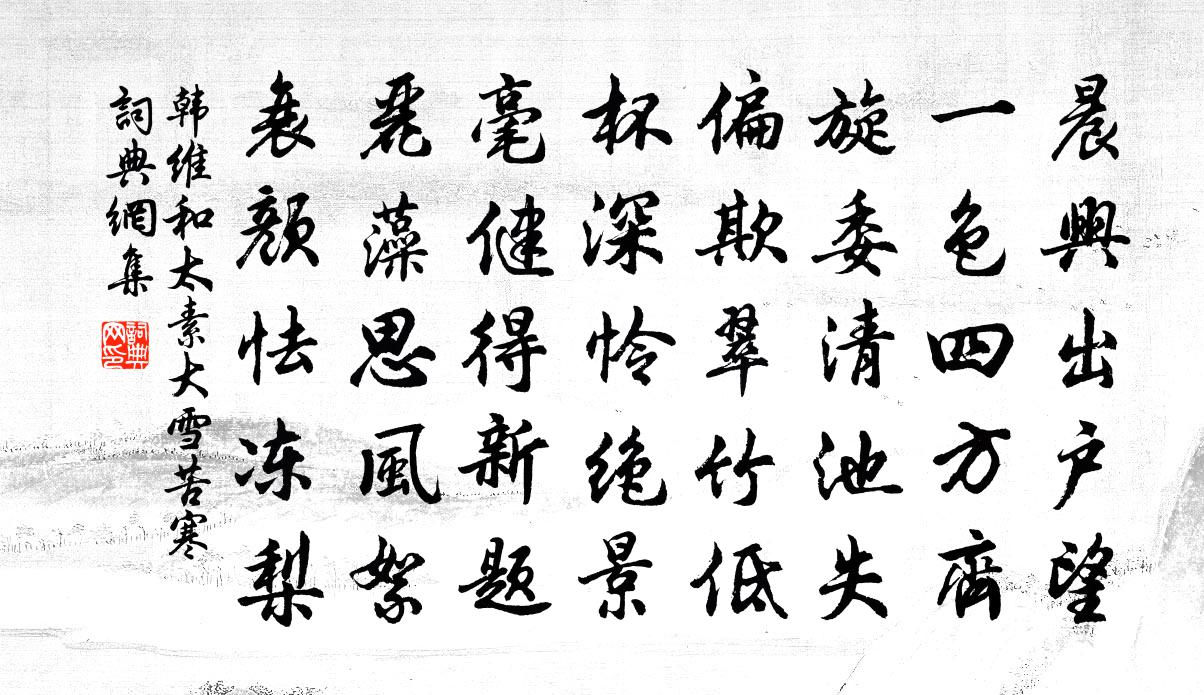 晨興出户望
一色四方齊
旋委清池失
偏欺翠竹低
杯深怜绝景
毫健得新题
麗藻思風絮
衰顔怯冻梨
韩维和太素大雪苦寒
詞典網集
詞典网印